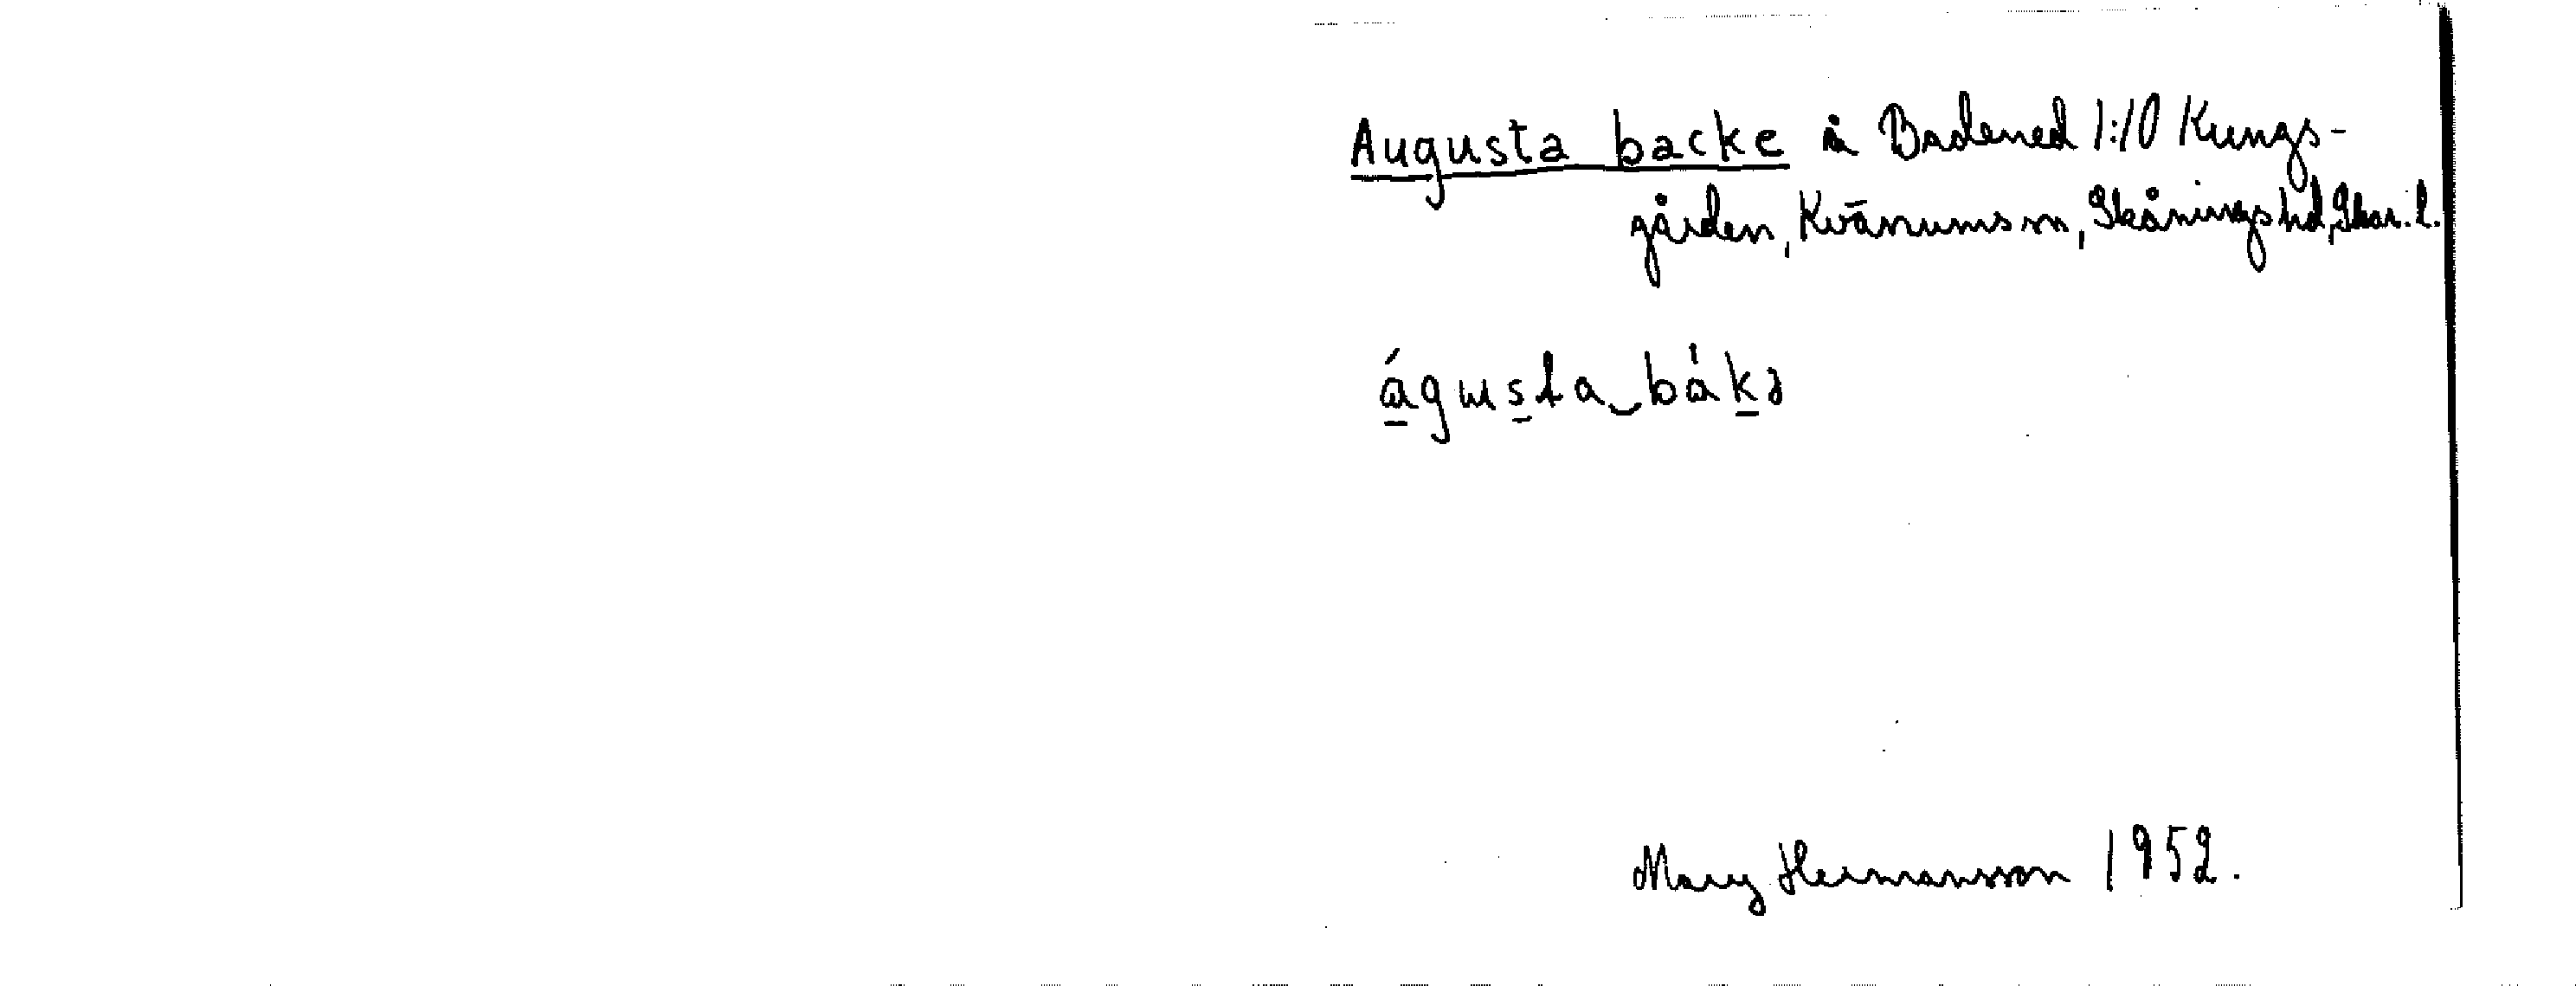 Augusta backe å Badened 1:10 Kungs-
gården, Kvänums sn, Skånings hd, Skar. l.
águsta‿bákə
Mary Hermansson 1952.